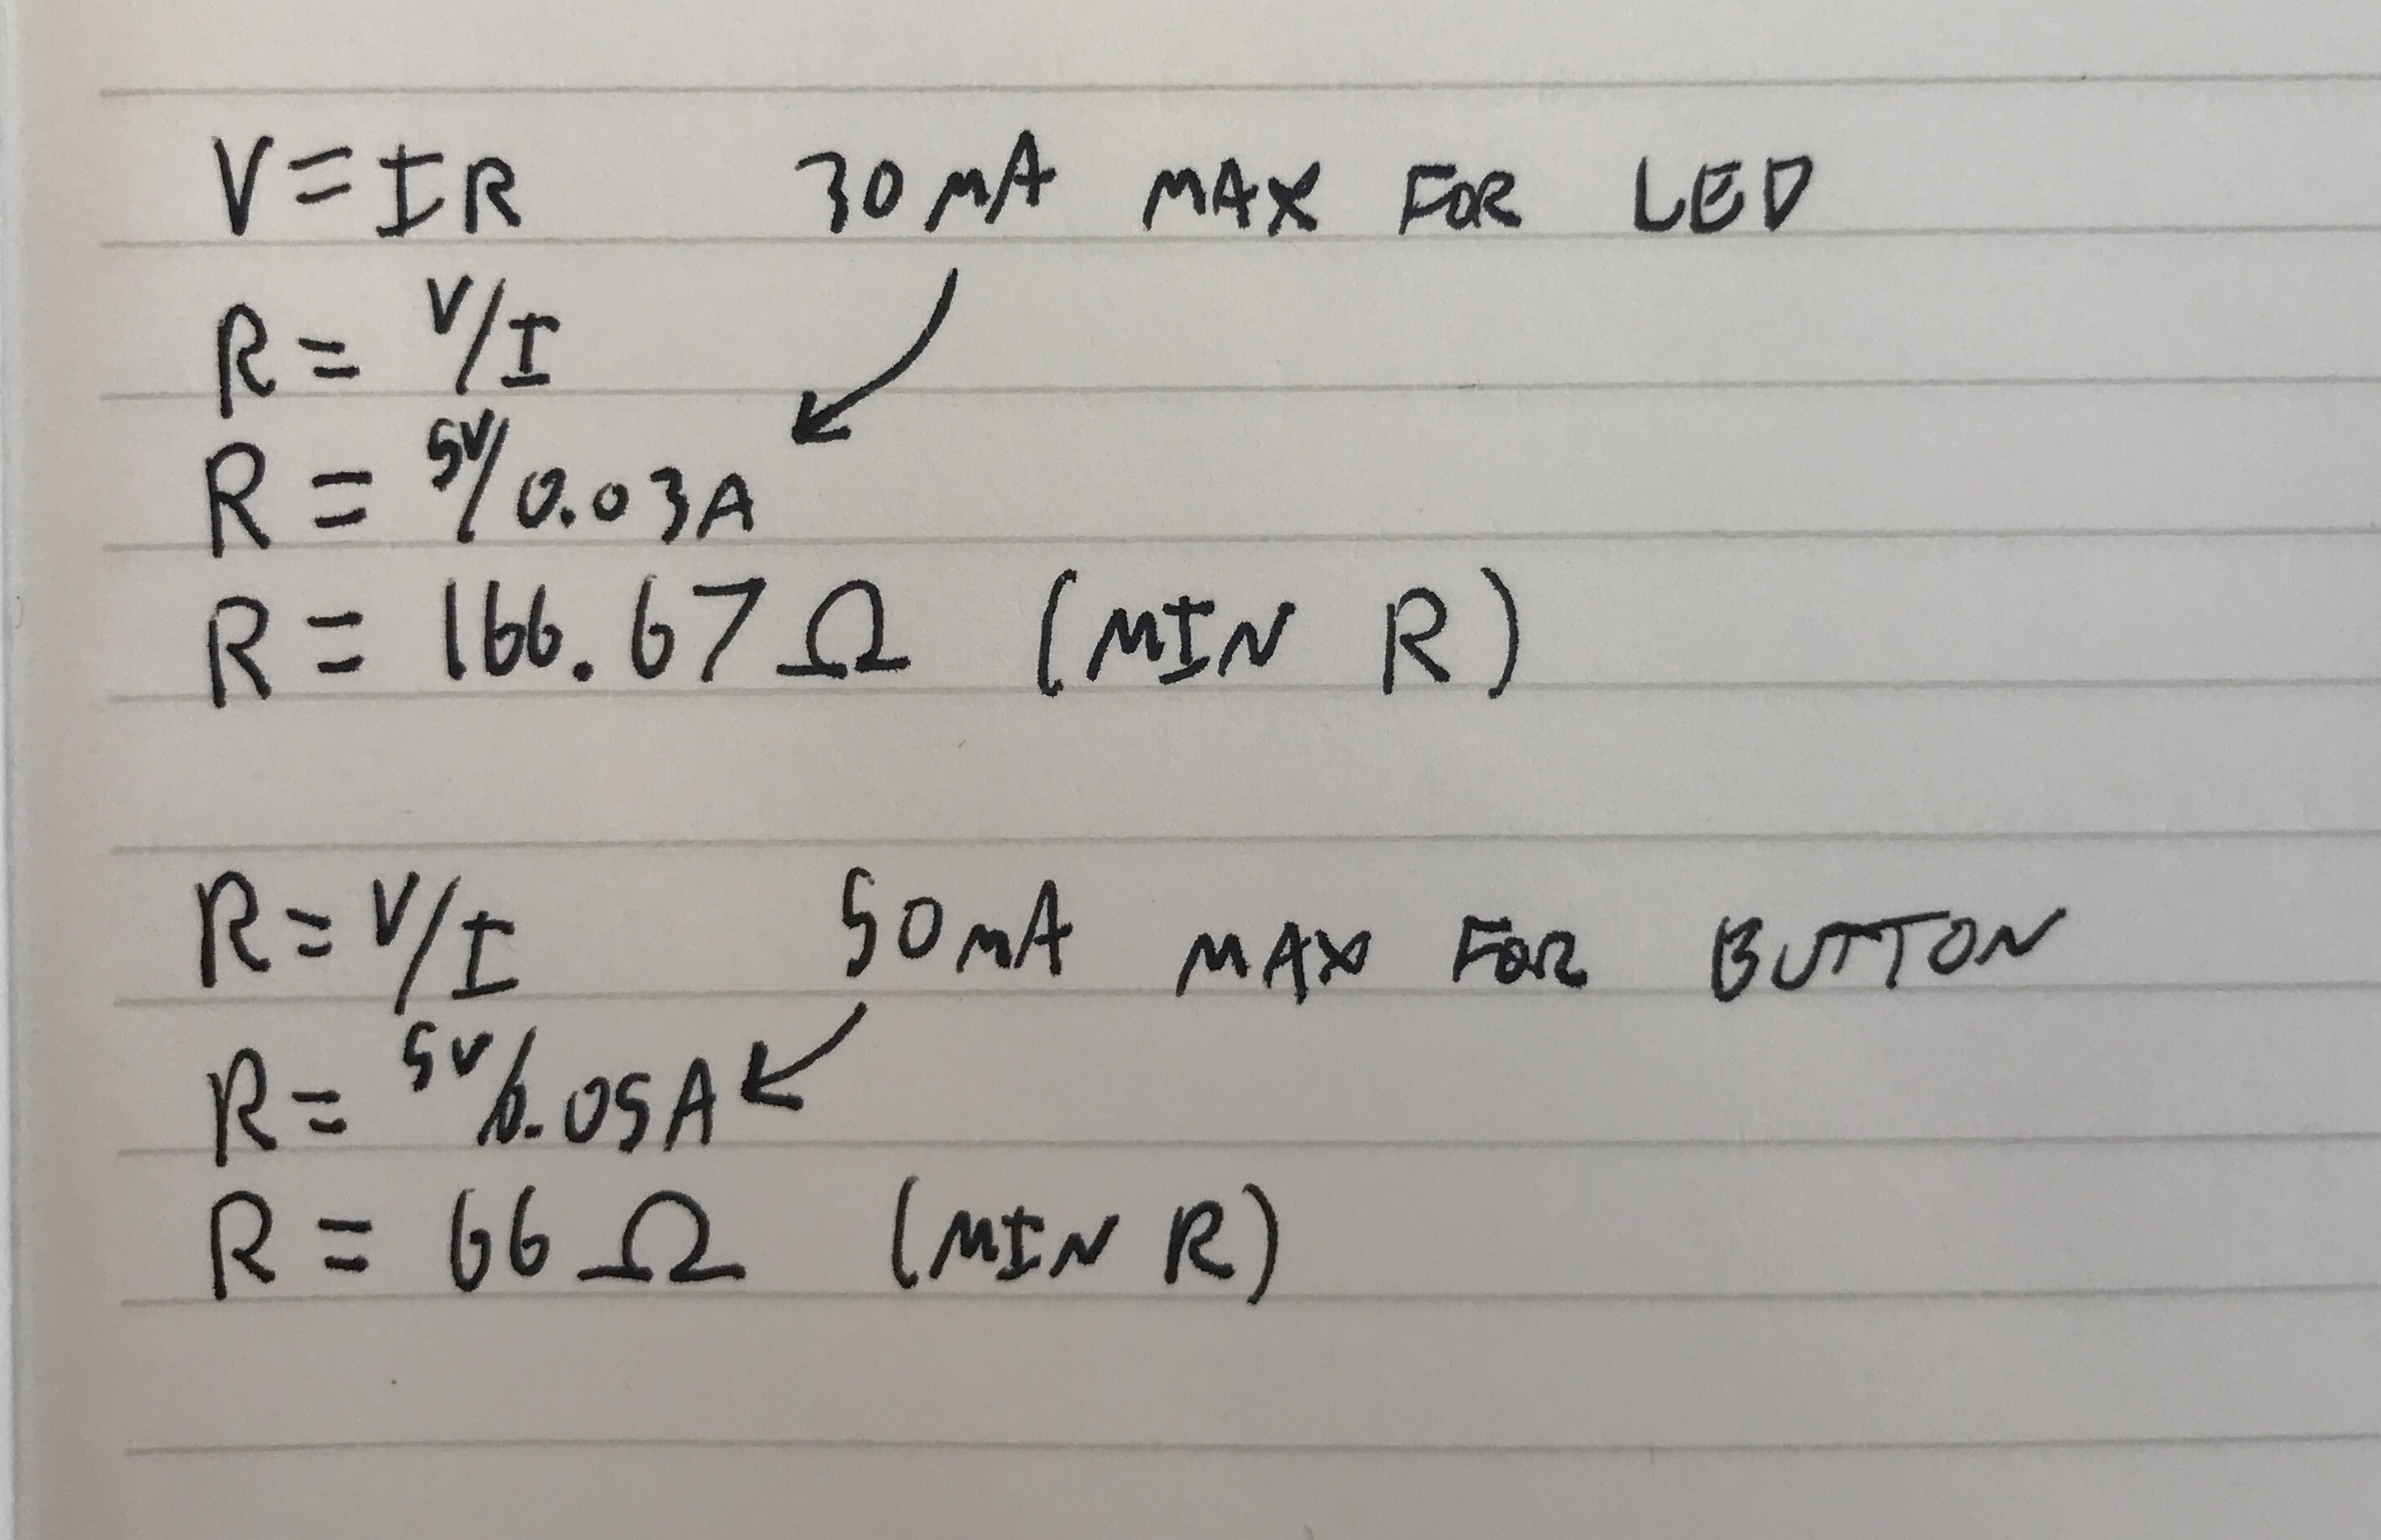 V = IR 30 mA MAX FOR LED
R = V/I
R = 5V/0.03A
R = 166.67 Ω (MIN R)
R = V/I 50 mA MAX FOR BUTTON
R = 5V/0.05A
R = 66 Ω (MIN R)